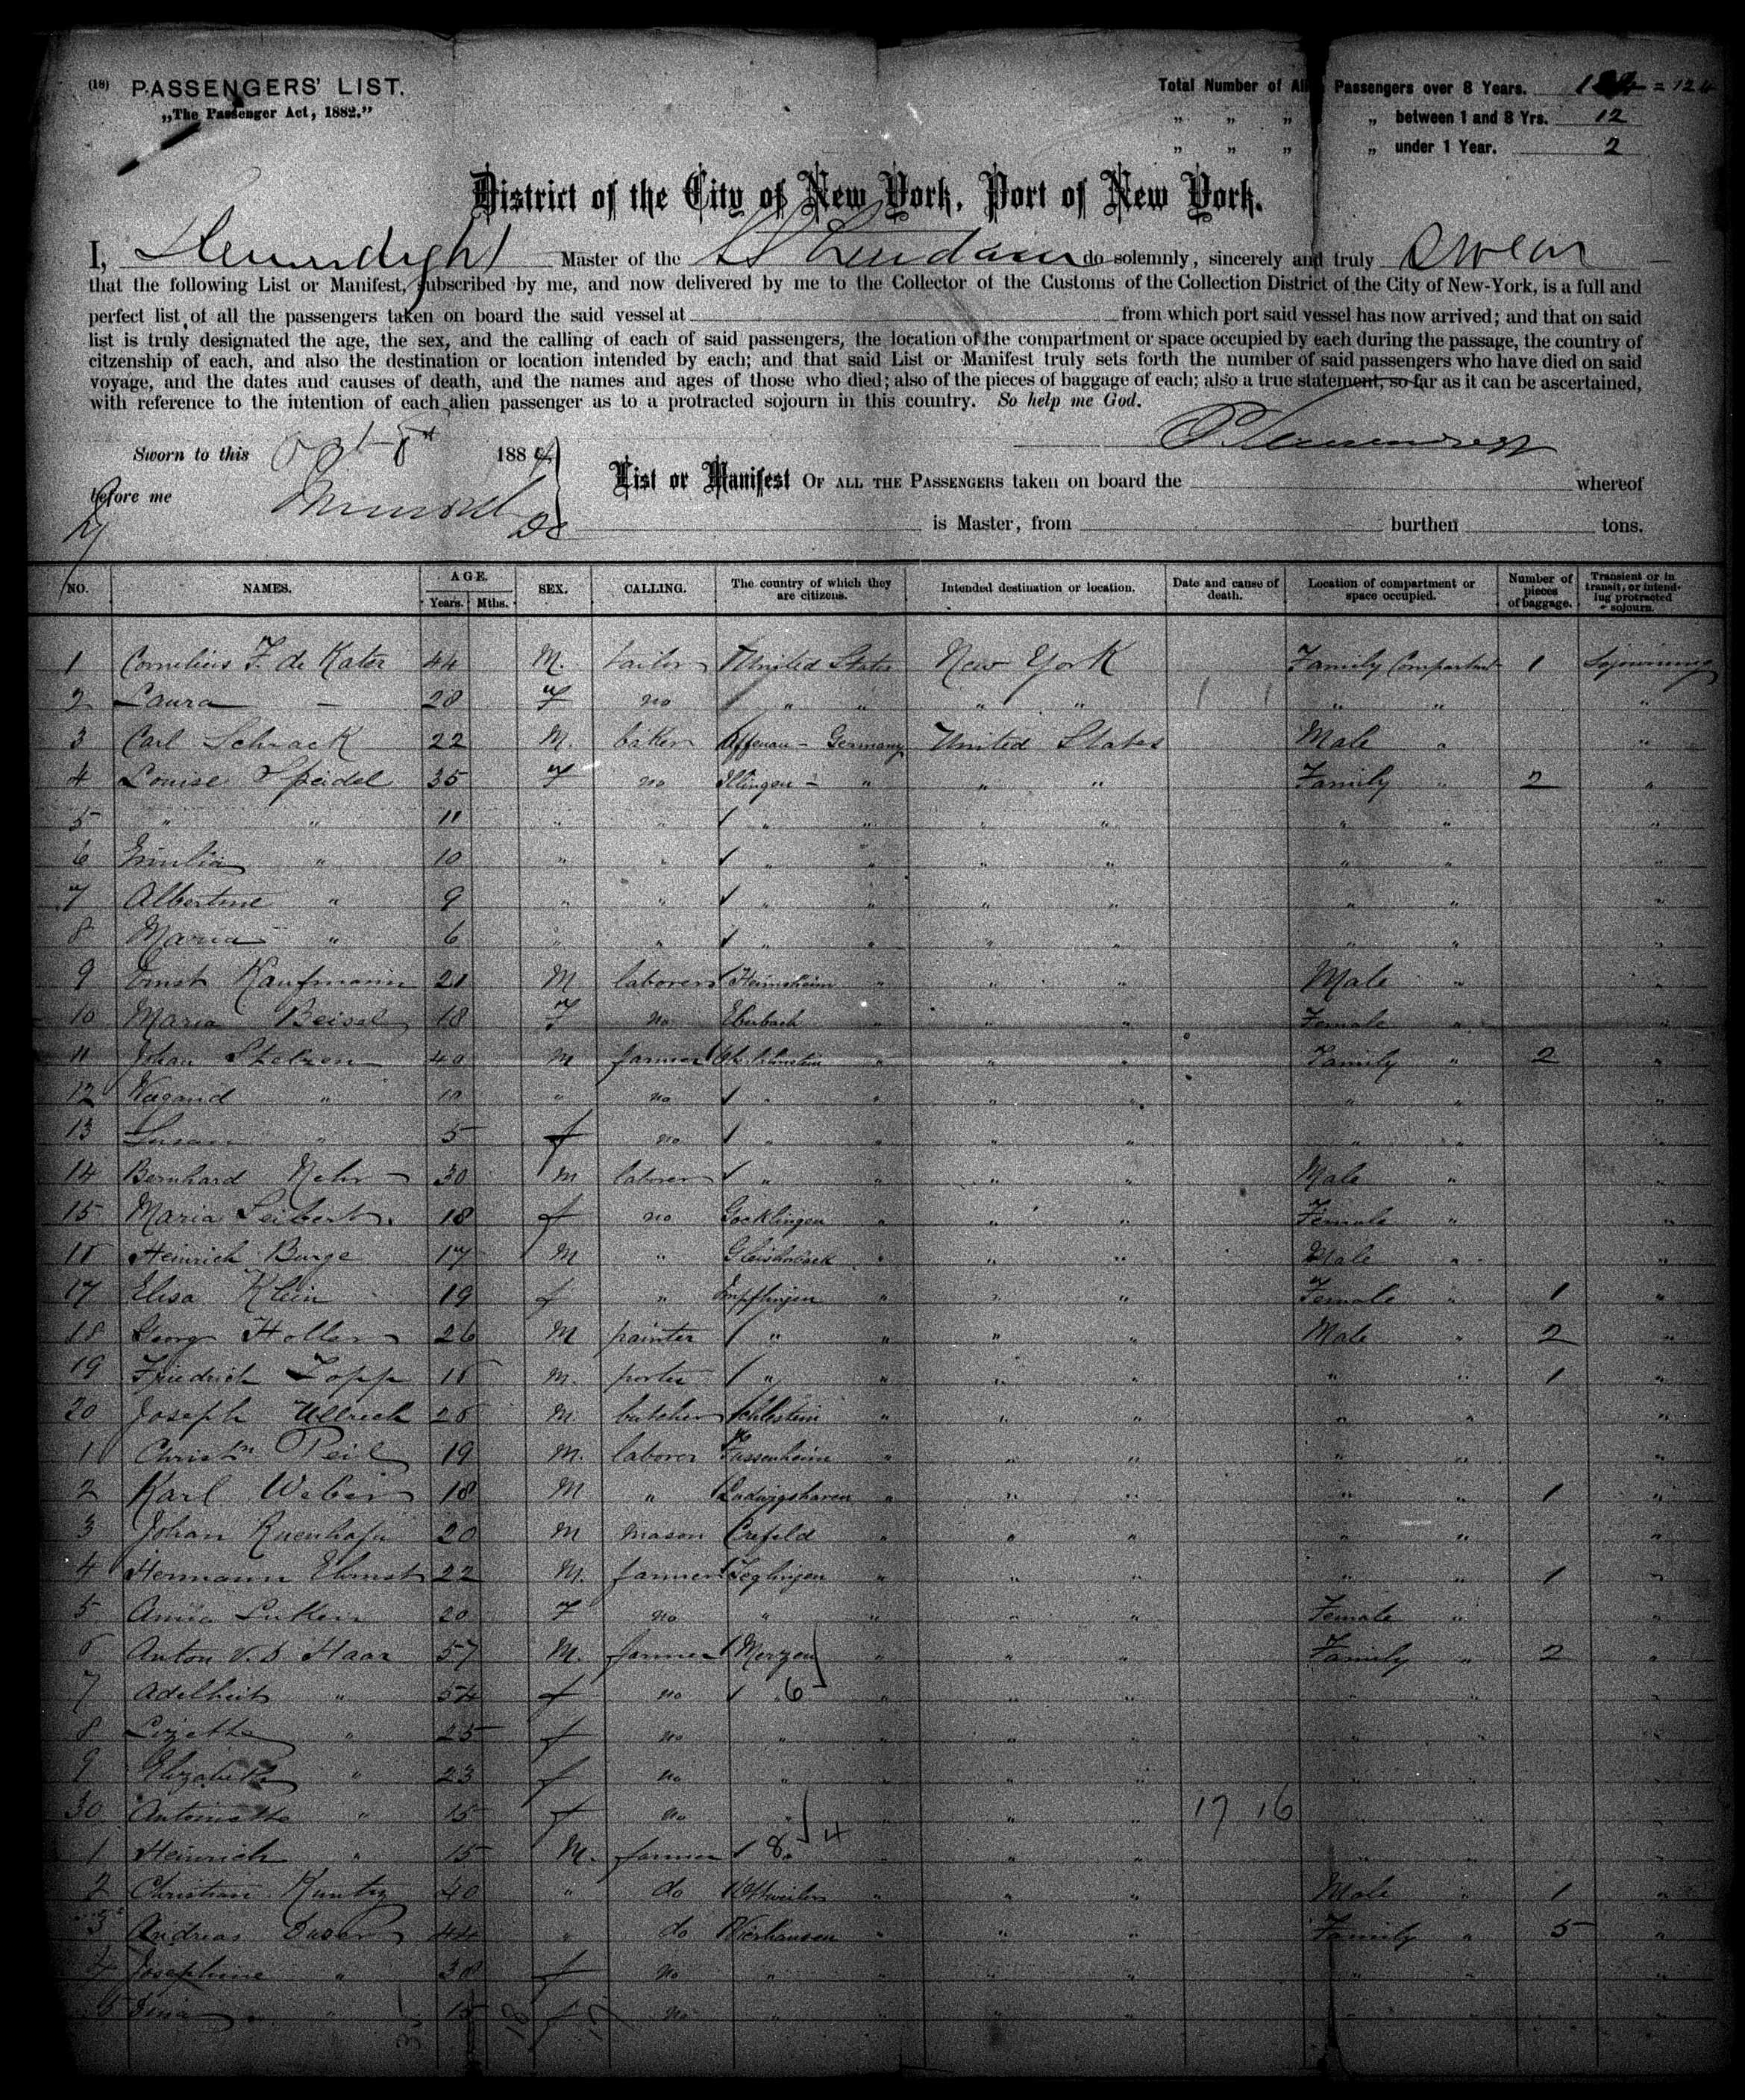 (18) PASSENGERS' LIST.
„The Passenger Act, 1882.”
Total Number of Alien Passengers over 8 Years. = 124
„ „ „ „ between 1 and 8 Yrs. 12
„ „ „ „ under 1 Year. 2
District of the City of New York, Port of New York.
I, Master of the do solemnly, sincerely and truly swear
that the following List or Manifest, subscribed by me, and now delivered by me to the Collector of the Customs of the Collection District of the City of New-York, is a full and
perfect list of all the passengers taken on board the said vessel at from which port said vessel has now arrived; and that on said
list is truly designated the age, the sex, and the calling of each of said passengers, the location of the compartment or space occupied by each during the passage, the country of
citzenship of each, and also the destination or location intended by each; and that said List or Manifest truly sets forth the number of said passengers who have died on said
voyage, and the dates and causes of death, and the names and ages of those who died; also of the pieces of baggage of each; also a true statement, so far as it can be ascertained,
with reference to the intention of each alien passenger as to a protracted sojourn in this country. So help me God.
Sworn to this Oct 1884
before me
List or Manifest OF ALL THE PASSENGERS taken on board the whereof
is Master, from burthen tons.
NO. NAMES. AGE. Years. Mths. SEX. CALLING. The country of which they are citizens. Intended destination or location. Date and cause of death. Location of compartment or space occupied. Number of pieces of baggage. Transient or in transit, or intending protracted sojourn.
1 Cornelius F. de Kater 44 M. tailor United States New York Family Compartment 1 Sojourning
2 Laura — 28 F no „ „ „ „ „ „ „
3 Carl Schrack 22 M. baker Germany United States Male „ „
4 Louise Speidel 35 F no Illingen - „ „ „ Family „ 2 „
5 „ „ 11 „ „ „ „ „ „ „ „ „
6 Emilia „ 10 „ „ „ „ „ „ „ „ „
7 Albertine „ 9 „ „ „ „ „ „ „ „ „
8 Maria „ 6 „ „ „ „ „ „ „ „ „
9 Ernst Kaufmann 21 M laborer Heimsheim „ „ „ Male „ „
10 Maria Beisel 18 F no Eberbach „ „ „ Female „ „
11 Johan Stelzen 40 M farmer „ „ „ Family „ 2 „
12 „ 10 „ no „ „ „ „ „ „ „
13 Susan „ 5 f no „ „ „ „ „ „
14 Bernhard Nehr 30 M laborer „ „ „ „ Male „ „
15 Maria Seibert 18 f no Gocklingen „ „ „ Female „ „
16 Heinrich Burge 17 M „ „ „ „ Male „ „
17 Elisa Klein 19 f „ Empflingen „ „ „ Female „ 1 „
18 Georg Holler 26 M painter „ „ „ „ Male „ 2 „
19 Friedrich Topp 18 M. porter „ „ „ „ „ „ 1 „
20 Joseph Ullrich M. butcher „ „ „ „ „ „
1 Christn Peil 19 M. laborer „ „ „ „ „
2 Karl Weber 18 M „ Ludwigshaven „ „ „ „ „ 1 „
3 Johan 20 M mason Crefeld „ „ „ „ „ „
4 Hermann 22 M. farmer „ „ „ „ „ 1 „
5 Anna 20 F no „ „ „ „ Female „ „
6 Anton v. d. Haar 57 M. farmer Merzen „ „ „ Family „ 2 „
7 Adelheit „ 54 f no „ 6 „ „ „ „ „
8 Lizette „ 25 f no „ „ „ „ „ „
9 Elizabeth „ 23 f no „ „ „ „ „
30 Antoinette „ 15 f no „ „ „ 17 16 „ „
1 Heinrich „ 15 M. farmer 8 4 „ „ „ „ „
2 Christian Kuntz 40 „ do Ottweiler „ „ „ Male „ 1 „
3 Andreas 44 „ do „ „ „ Family „ 5 „
4 Josephine „ 38 f no „ „ „ „ „ „ „
5 „ 15 f no „ „ „ „ „ „ „